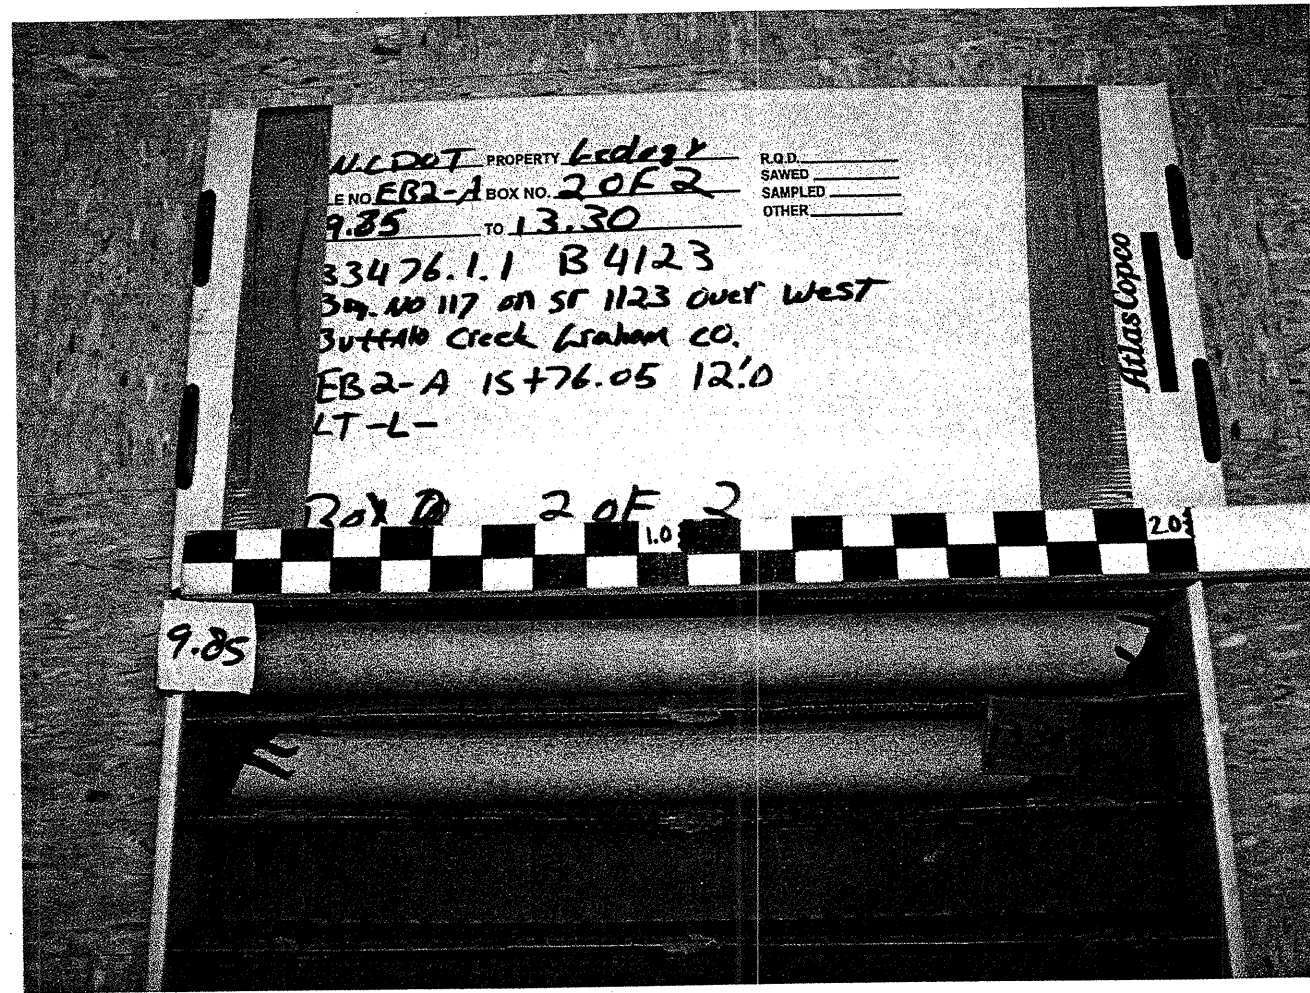 N.C DOT PROPERTY Geology R.Q.D.
E NO. EB2-A BOX NO. 2 OF 2 SAWED
SAMPLED
9.85 TO 13.30 OTHER
33476.1.1 B 4123
Bng. NO 117 on SR 1123 over West
Buffalo Creek Graham CO.
EB2-A 15+76.05 12.'0
LT -L-
Box 2 OF 2
Atlas Copco
1.0
2.0
9.85